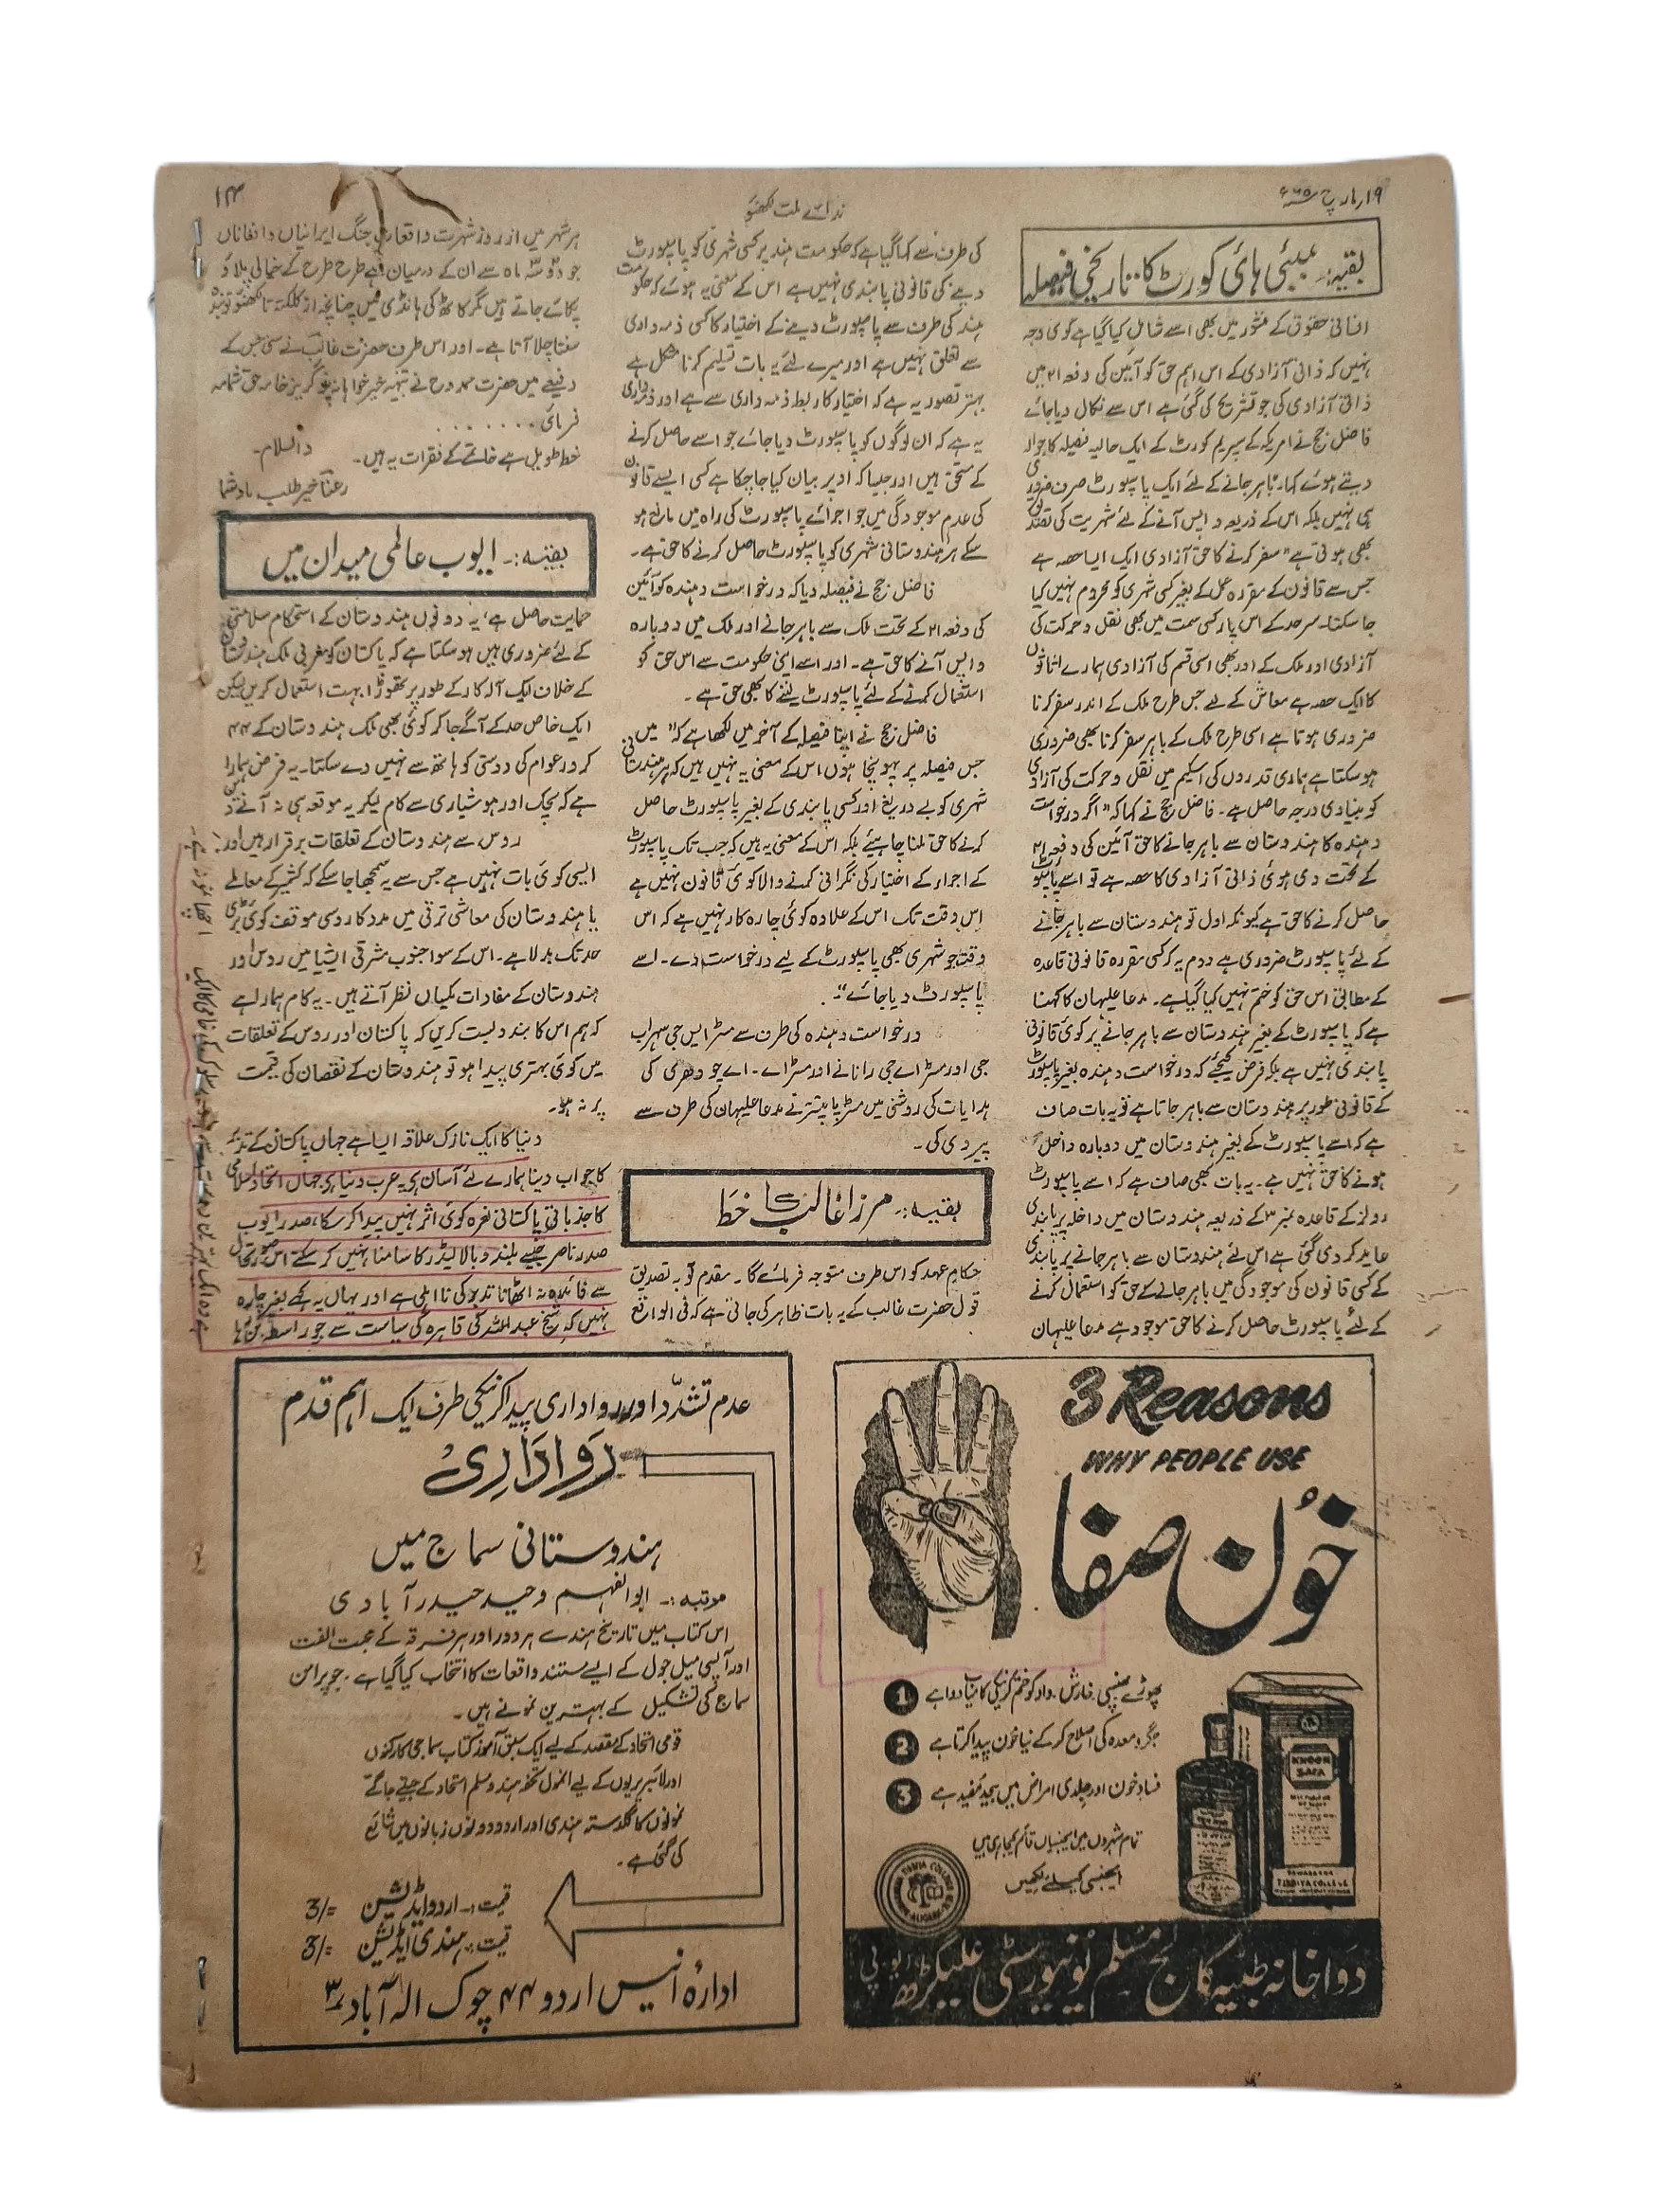 ۱۹ر مارچ ۶۵ء
ندائے ملت لکھنؤ
۱۳
بقیہ:۔ بمبئی ہائی کورٹ کا تاریخی فیصلہ
انسانی حقوق کے منشور میں بھی اسے شامل کیا گیا ہے کوئی وجہ
نہیں کہ ذاتی آزادی کے اس اہم حق کو آئین کی دفعہ ۲۱ میں
ذاتی آزادی کی جو تشریح کی گئی ہے اس سے نکال دیا جائے
فاضل جج نے امریکہ کے سپریم کورٹ کے ایک حالیہ فیصلہ کا حوالہ
دیتے ہوئے کہا۔ باہر جانے کے لئے ایک پاسپورٹ صرف ضروری
ہی نہیں بلکہ اس کے ذریعہ واپس آنے کے لئے شہریت کی تصدیق
بھی ہوتی ہے "سفر کرنے کا حق آزادی ایک ایسا حصہ ہے
جس سے قانون کے مقررہ عمل کے بغیر کسی شہری کو محروم نہیں کیا
جا سکتا۔ سرحد کے اس پار کسی سمت میں بھی نقل و حرکت کی
آزادی اور ملک کے اندر بھی اسی قسم کی آزادی ہمارے اثاثوں
کا ایک حصہ ہے معاش کے لیے جس طرح ملک کے اندر سفر کرنا
ضروری ہوتا ہے اسی طرح ملک کے باہر سفر کرنا بھی ضروری
ہو سکتا ہے ہماری قدروں کی اسکیم میں نقل و حرکت کی آزادی
کو بنیادی درجہ حاصل ہے۔ فاضل جج نے کہا کہ "اگر درخواست
دہندہ کا ہندوستان سے باہر جانے کا حق آئین کی دفعہ ۲۱
کے تحت دی ہوئی ذاتی آزادی کا حصہ ہے تو اسے پاسپورٹ
حاصل کرنے کا حق ہے کیونکہ اول تو ہندوستان سے باہر جانے
کے لئے پاسپورٹ ضروری ہے دوم یہ کہ کسی مقررہ قانونی قاعدہ
کے مطابق اس حق کو ختم نہیں کیا گیا ہے۔ مدعا علیہان کا کہنا
ہے کہ پاسپورٹ کے بغیر ہندوستان سے باہر جانے پر کوئی قانونی
پابندی نہیں ہے بلکہ فرض کیجئے کہ درخواست دہندہ بغیر پاسپورٹ
کے قانونی طور پر ہندوستان سے باہر جاتا ہے تو یہ بات صاف
ہے کہ اسے پاسپورٹ کے بغیر ہندوستان میں دوبارہ داخل
ہونے کا حق نہیں ہے۔ یہ بات بھی صاف ہے کہ اسے پاسپورٹ
رولز کے قاعدہ نمبر ۳ کے ذریعہ ہندوستان میں داخلہ پر پابندی
عاید کر دی گئی ہے اس لئے ہندوستان سے باہر جانے پر پابندی
کے کسی قانون کی موجودگی میں باہر جانے کے حق کو استعمال کرنے
کے لئے پاسپورٹ حاصل کرنے کا حق موجود ہے مدعا علیہان
کی طرف سے کہا گیا ہے کہ حکومت ہند پر کسی شہری کو پاسپورٹ
دینے کی قانونی پابندی نہیں ہے اس کے معنی یہ ہوئے کہ حکومت
ہند کی طرف سے پاسپورٹ دینے کے اختیار کا کسی ذمہ داری
سے تعلق نہیں ہے اور میرے لئے یہ بات تسلیم کرنا مشکل ہے
بہتر تصور یہ ہے کہ اختیار کا ربط ذمہ داری سے ہے اور ذمہ داری
یہ ہے کہ ان لوگوں کو پاسپورٹ دیا جائے جو اسے حاصل کرنے
کے مستحق ہیں اور جیسا کہ اوپر بیان کیا جا چکا ہے کسی ایسے قانون
کی عدم موجودگی میں جو اجرائے پاسپورٹ کی راہ میں مانع ہو
سکے ہر ہندوستانی شہری کو پاسپورٹ حاصل کرنے کا حق ہے۔
فاضل جج نے فیصلہ دیا کہ درخواست دہندہ کو آئین
کی دفعہ ۲۱ کے تحت ملک سے باہر جانے اور ملک میں دوبارہ
واپس آنے کا حق ہے۔ اور اسے اپنی حکومت سے اس حق کو
استعمال کرنے کے لئے پاسپورٹ لینے کا بھی حق ہے۔
فاضل جج نے اپنا فیصلہ کے آخر میں لکھا ہے کہ "میں
جس فیصلہ پر پہونچا ہوں اس کے معنی یہ نہیں ہیں کہ ہر ہندستانی
شہری کو بے دریغ اور کسی پابندی کے بغیر پاسپورٹ حاصل
کرنے کا حق ملنا چاہیئے بلکہ اس کے معنی یہ ہیں کہ جب تک پاسپورٹ
کے اجراء کے اختیار کی نگرانی کرنے والا کوئی قانون نہیں ہے
اس وقت تک اس کے علاوہ کوئی چارہ کار نہیں ہے کہ اس
وقت جو شہری بھی پاسپورٹ کے لیے درخواست دے۔ اسے
پاسپورٹ دیا جائے"۔
درخواست دہندہ کی طرف سے مسٹر ایس جی سہراب
جی اور مسٹر اے جی رانا نے اور مسٹر اے۔ اے چودھری کی
ہدایات کی روشنی میں مسٹر پاپیتر نے مدعا علیہان کی طرف سے
پیروی کی۔
بقیہ:۔ مرزا غالب کا خط
حکام عہد کو اس طرف متوجہ فرمائے گا۔ مقدم تو بہ تصدیق
قول حضرت غالب کے یہ بات ظاہر کی جاتی ہے کہ فی الواقع
ہر شہر میں از روز شہرت واقعاری جنگ ایرانیاں و افغاناں
جو دو سہ ماہ سے ان کے درمیان ہے طرح طرح کے خیالی پلاؤ
پکائے جاتے ہیں مگر کاٹھ کی ہانڈی میں چنانچہ از کلکتہ تا لکھنؤ
سنتا چلا آتا ہے۔ اور اس طرف حضرت غالب نے سنی جس کے
دفیعے میں حضرت ممدوح نے خامہ حق شمامہ
فرمائی . . . . . . .
خط طویل ہے خاتمے کے فقرات یہ ہیں۔ والسلام۔
رعنا خیر طلب بادشما
بقیہ:۔ ایوب عالمی میدان میں
حمایت حاصل ہے، یہ دونوں ہندوستان کے استحکام سلامتی
کے لئے ضروری ہیں ہو سکتا ہے کہ پاکستان کو مغربی ملک ہندوستان
کے خلاف ایک آلہ کار کے طور پر تھوڑا بہت استعمال کریں لیکن
ایک خاص حد کے آگے جا کر کوئی بھی ملک ہندوستان کے ۴۴
کروڑ عوام کی دوستی کو ہاتھ سے نہیں دے سکتا۔ یہ فرض ہمارا
ہے کہ لچک اور ہوشیاری سے کام لیکر یہ موقعہ ہی نہ آنے دیں
روس سے ہندوستان کے تعلقات برقرار ہیں اور
ایسی کوئی بات نہیں ہے جس سے یہ سمجھا جا سکے کہ کشمیر کے معاملے
یا ہندوستان کی معاشی ترقی میں مدد کا روسی موقف کوئی بڑی
حد تک بدلا ہے۔ اس کے سوا جنوب مشرقی ایشیا میں روس اور
ہندوستان کے مفادات یکساں نظر آتے ہیں۔ یہ کام ہمارا ہے
کہ ہم اس کا بندوبست کریں کہ پاکستان اور روس کے تعلقات
میں کوئی بہتری پیدا ہو تو ہندوستان کے نقصان کی قیمت
پر نہ ہو۔
دنیا کا ایک نازک علاقہ ایسا ہے جہاں پاکستان کے تدبر
کا جواب دینا ہمارے لئے آسان ہی یہ عرب دنیا ہی جہاں اتحاد اسلامی
کا جذباتی پاکستانی نعرہ کوئی اثر نہیں پیدا کر سکا، صدر ایوب
صدر ناصر جیسے بلند و بالا لیڈر کا سامنا نہیں کر سکتے اس صورتحال
سے فائدہ نہ اٹھانا تدبر کی نااہلی ہے اور یہاں یہ کہے بغیر چارہ
نہیں کہ شیخ عبداللہ کی قاہرہ کی سیاست سے جو راسطہ بن رہا
3 Reasons
WHY PEOPLE USE
خون صفا
1 پھوڑے پھنسی، خارش، داد کو ختم کرنیکی کامیاب دوا ہے
2 جگر و معدہ کی اصلاح کر کے نیا خون پیدا کرتا ہے
3 فساد خون اور جلدی امراض میں بیحد مفید ہے
تمام شہروں میں ایجنسیاں قائم کیجا رہی ہیں
ایجنسی کیلئے لکھیں
KHOON
SAFA
TIBBIYA COLLEGE
دواخانہ طبیہ کالج مسلم یونیورسٹی علیگڑھ یو۔پی
عدم تشدد اور رواداری پیدا کرنیکی طرف ایک اہم قدم
رواداری
ہندوستانی سماج میں
مرتبہ:۔ ابوالفہم وحید حیدرآبادی
اس کتاب میں تاریخ ہند سے ہر دور اور ہر فرقہ کے محبت الفت
اور آپسی میل جول کے ایسے مستند واقعات کا انتخاب کیا گیا ہے۔ جو پرامن
سماج کی تشکیل کے بہترین نمونے ہیں۔
قومی اتحاد کے مقصد کے لیے ایک سبق آموز کتاب سماجی کارکنوں
اور لائبریریوں کے لیے انمول تحفہ ہندو مسلم اتحاد کے جیتے جاگتے
نمونوں کا گلدستہ ہندی اور اردو دونوں زبانوں میں شائع
کی گئی ہے۔
قیمت:۔ اردو ایڈیشن 3/=
قیمت:۔ ہندی ایڈیشن 3/=
ادارہ انیس اردو ۴۴ چوک الہ آباد ۳